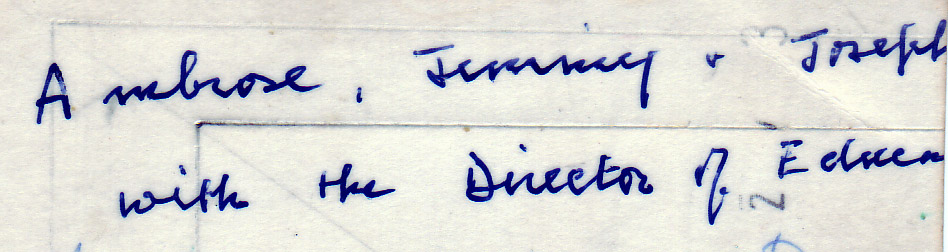 Ambrose, Jimmy & Joseph
with the Director of Educa